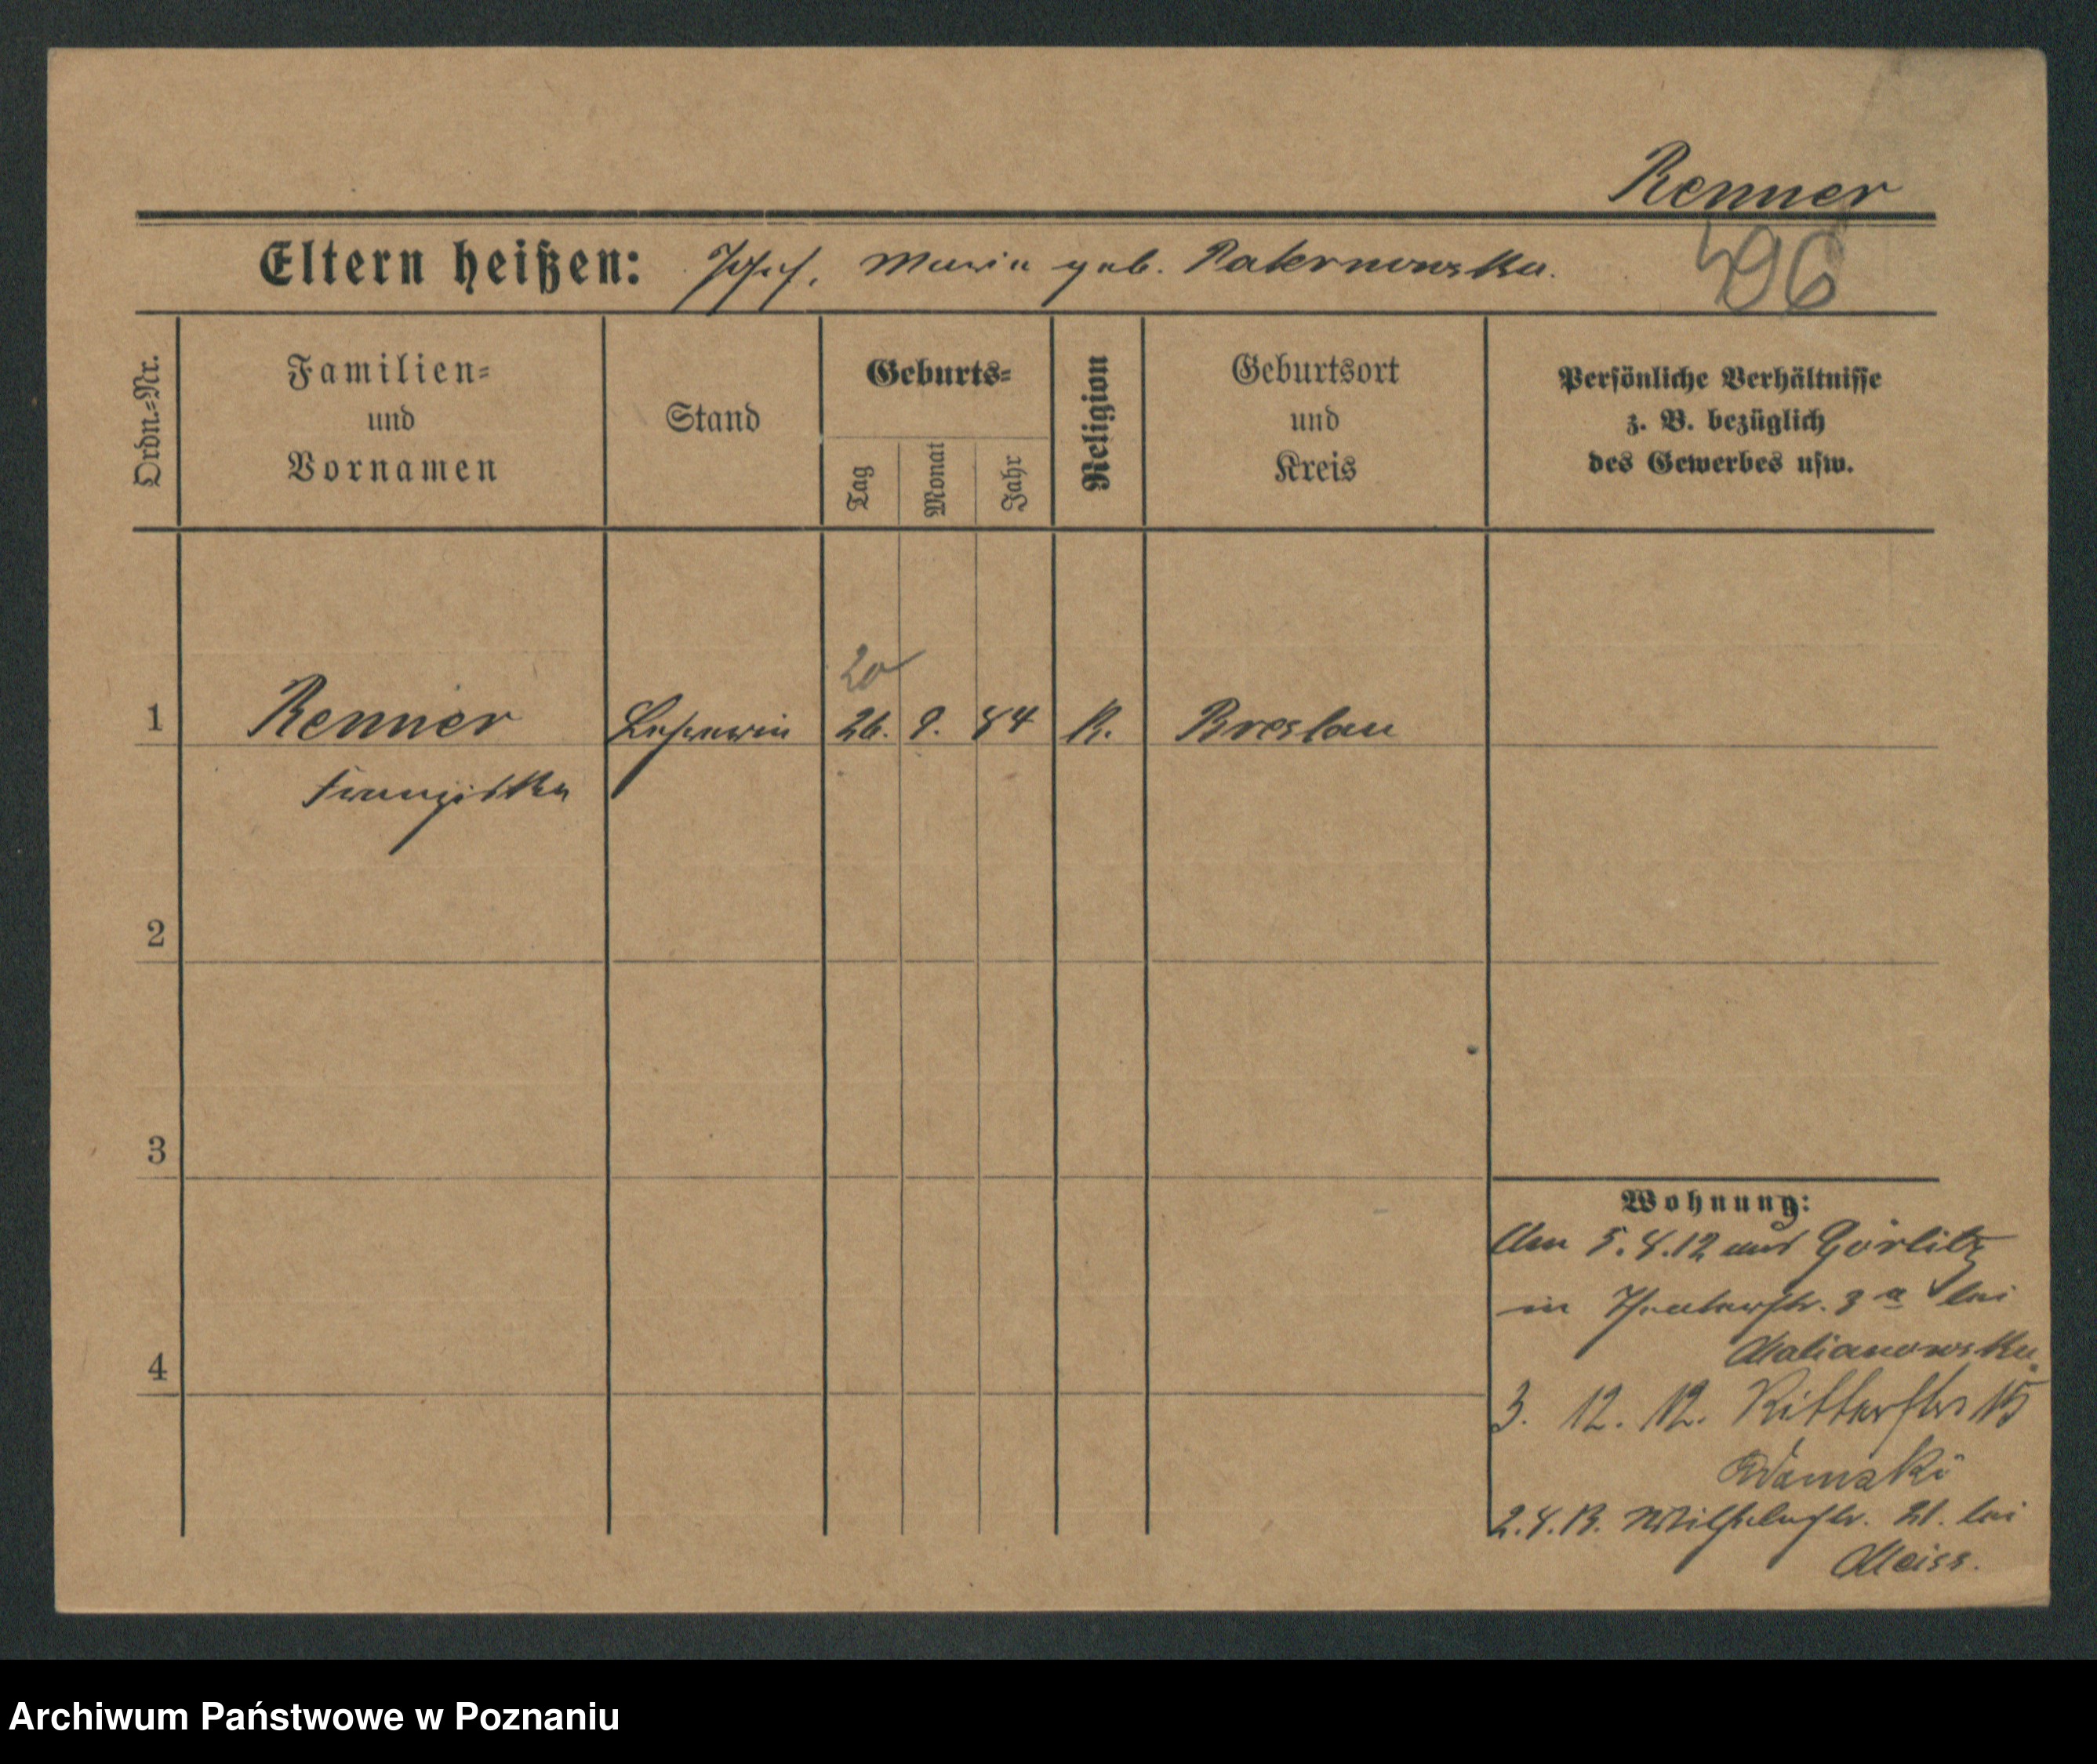 Renner
496
Eltern heißen: Josef, Maria geb. Paternowska.
Ordn.-Nr.
Familien=
und
Vornamen
Stand
Geburts=
Tag
Monat
Jahr
Religion
Geburtsort
und
Kreis
Persönliche Verhältnisse
z. B. bezüglich
des Gewerbes usw.
20
1 Renner Lehrerin 26. 9. 84 K. Breslau
Franziska
2
3
4
Wohnung:
Am 5.4.12 aus Görlitz
in Theaterstr. 3 a bei
Malianowska.
3. 12. 12. Ritterstr 15
Adamski
2.4.13. Wilhelmstr. 21. bei
Meiss.
Archiwum Państwowe w Poznaniu